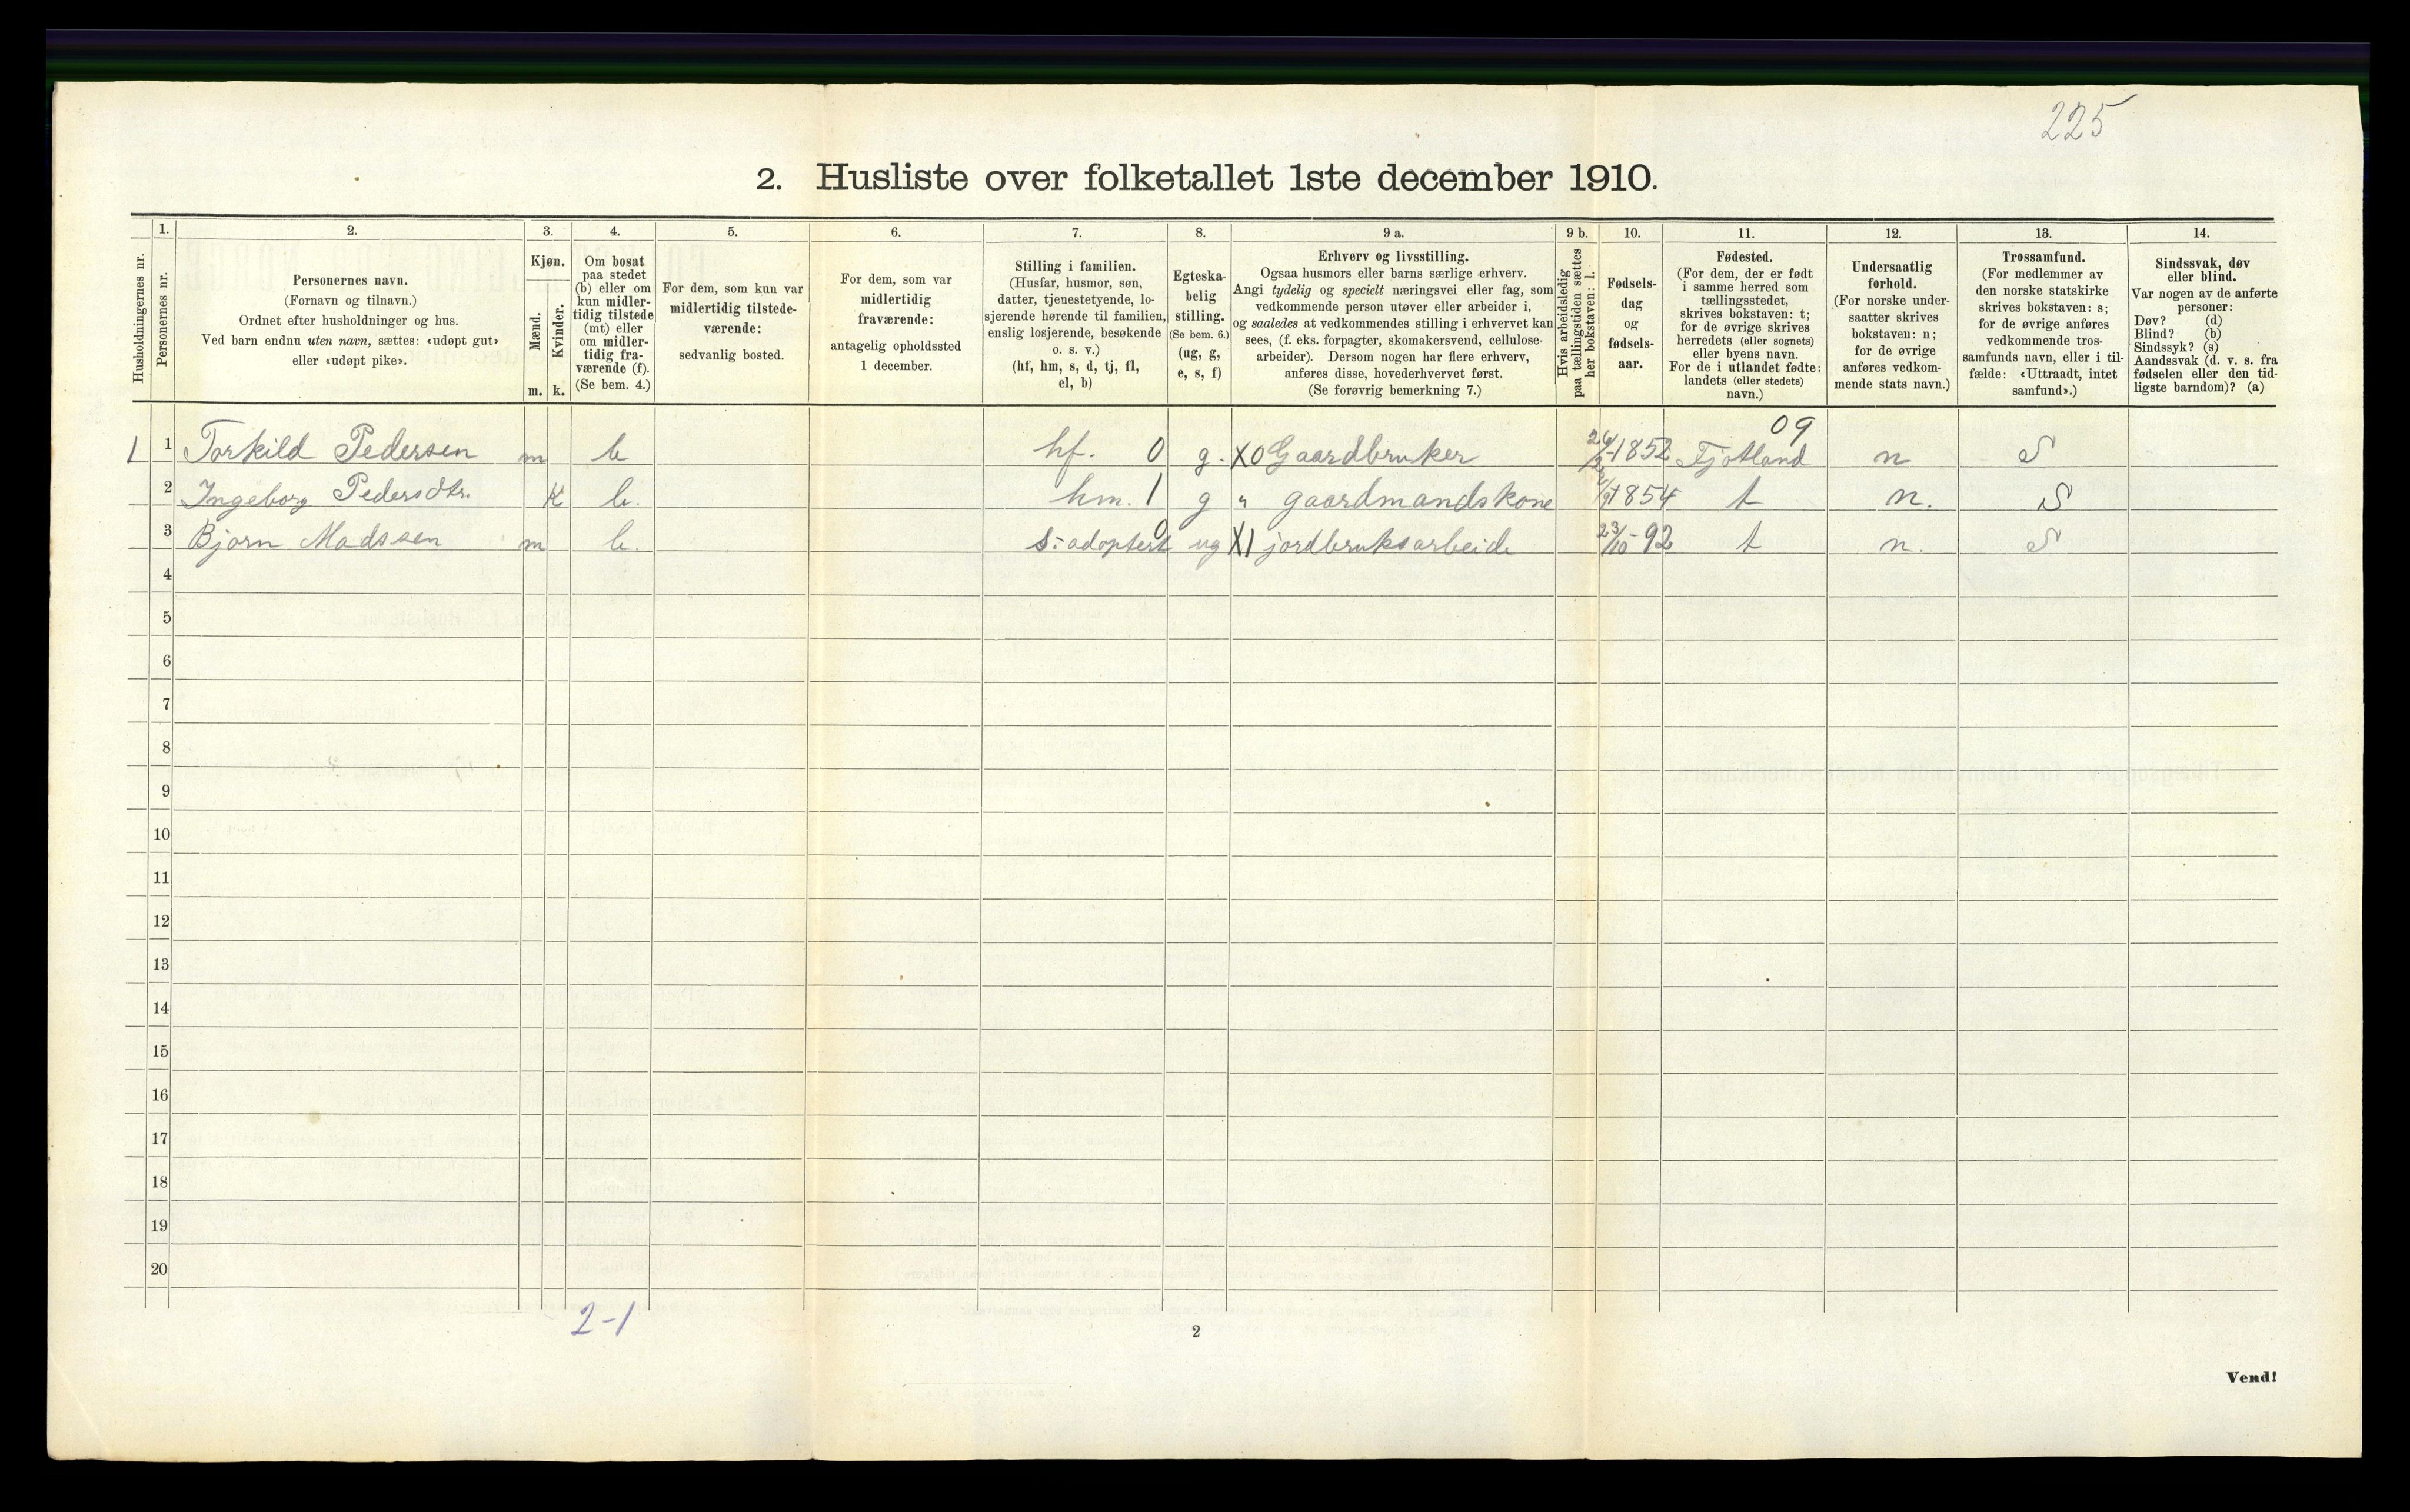 225
2. Husliste over folketallet 1ste december 1910.
Husholdningernes nr.
1.
Personernes nr.
2.
Personernes navn.
(Fornavn og tilnavn.)
Ordnet efter husholdninger og hus.
Ved barn endnu uten navn, sættes: «udøpt gut»
eller «udøpt pike».
3.
Kjøn.
Mænd.
m.
Kvinder.
k.
4.
Om bosat
paa stedet
(b) eller om
kun midler-
tidig tilstede
(mt) eller
om midler-
tidig fra-
værende (f).
(Se bem. 4.)
5.
For dem, som kun var
midlertidig tilstede-
værende:
sedvanlig bosted.
6.
For dem, som var
midlertidig
fraværende:
antagelig opholdssted
1 december.
7.
Stilling i familien.
(Husfar, husmor, søn,
datter, tjenestetyende, lo-
sjerende hørende til familien,
enslig losjerende, besøkende
o. s. v.)
(hf, hm, s, d, tj, fl,
el, b)
8.
Egteska-
belig
stilling.
(Se bem. 6.)
(ug, g,
e, s, f)
9 a.
Erhverv og livsstilling.
Ogsaa husmors eller barns særlige erhverv.
Angi tydelig og specielt næringsvei eller fag, som
vedkommende person utøver eller arbeider i,
og saaledes at vedkommendes stilling i erhvervet kan
sees, (f. eks. forpagter, skomakersvend, cellulose-
arbeider). Dersom nogen har flere erhverv,
anføres disse, hovederhvervet først.
(Se forøvrig bemerkning 7.)
9 b.
Hvis arbeidsledig
paa tællingstiden sættes
her bokstaven: l.
10.
Fødsels-
dag
og
fødsels-
aar.
11.
Fødested.
(For dem, der er født
i samme herred som
tællingsstedet,
skrives bokstaven: t;
for de øvrige skrives
herredets (eller sognets)
eller byens navn.
For de i utlandet fødte:
landets (eller stedets)
navn.)
12.
Undersaatlig
forhold.
(For norske under-
saatter skrives
bokstaven: n;
for de øvrige
anføres vedkom-
mende stats navn.)
13.
Trossamfund.
(For medlemmer av
den norske statskirke
skrives bokstaven: s;
for de øvrige anføres
vedkommende tros-
samfunds navn, eller i til-
fælde: «Uttraadt, intet
samfund».)
14.
Sindssvak, døv
eller blind.
Var nogen av de anførte
personer:
Døv? (d)
Blind? (b)
Sindssyk? (s)
Aandssvak (d. v. s. fra
fødselen eller den tid-
ligste barndom)? (a)
09
1 1 Torkild Pedersen m b hf. 0 g. X0 Gaardbruker 1852 Fjotland n S
2 Ingeborg Pedersdtr. K b. hm. 1 g " gaardmandskone 1854 t n. S
3 Bjørn Madssen m b. s: adoptert 0 ug X1 jordbruksarbeide 23/10-92 t n. S
4
5
6
7
8
9
10
11
12
13
14
15
16
17
18
19
20
2-1
2
Vend!